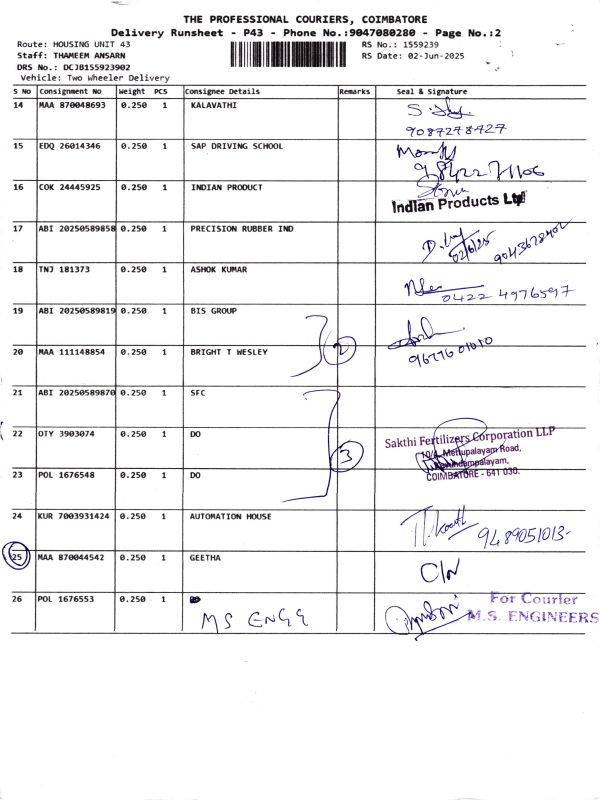 THE PROFESSIONAL COURIERS, COIMBATORE
Delivery Runsheet - P43 - Phone No.:9047080280 - Page No.:2
Route: HOUSING UNIT 43 RS No.: 1559239
Staff: THAMEEM ANSARN RS Date: 02-Jun-2025
DRS No.: DCJB155923902
Vehicle: Two Wheeler Delivery
S No Consignment No Weight PCS Consignee Details Remarks Seal & Signature
14 MAA 870048693 0.250 1 KALAVATHI
9087278727
15 EDQ 26014346 0.250 1 SAP DRIVING SCHOOL
9842271106
16 COK 24445925 0.250 1 INDIAN PRODUCT
Indian Products Ltd
17 ABI 20250589858 0.250 1 PRECISION RUBBER IND
02/6/25 9043678402
18 TNJ 181373 0.250 1 ASHOK KUMAR
0422 4976597
19 ABI 20250589819 0.250 1 BIS GROUP
20 MAA 111148854 0.250 1 BRIGHT T WESLEY
2
9677601010
21 ABI 20250589870 0.250 1 SFC
22 OTY 3903074 0.250 1 DO
Sakthi Fertilizers Corporation LLP
10/4, Mettupalayam Road,
COIMBATORE - 641 030.
3
23 POL 1676548 0.250 1 DO
24 KUR 7003931424 0.250 1 AUTOMATION HOUSE
9489051013-
25 MAA 870044542 0.250 1 GEETHA
C/N
26 POL 1676553 0.250 1
MS ENGG
For Courier
M.S. ENGINEERS